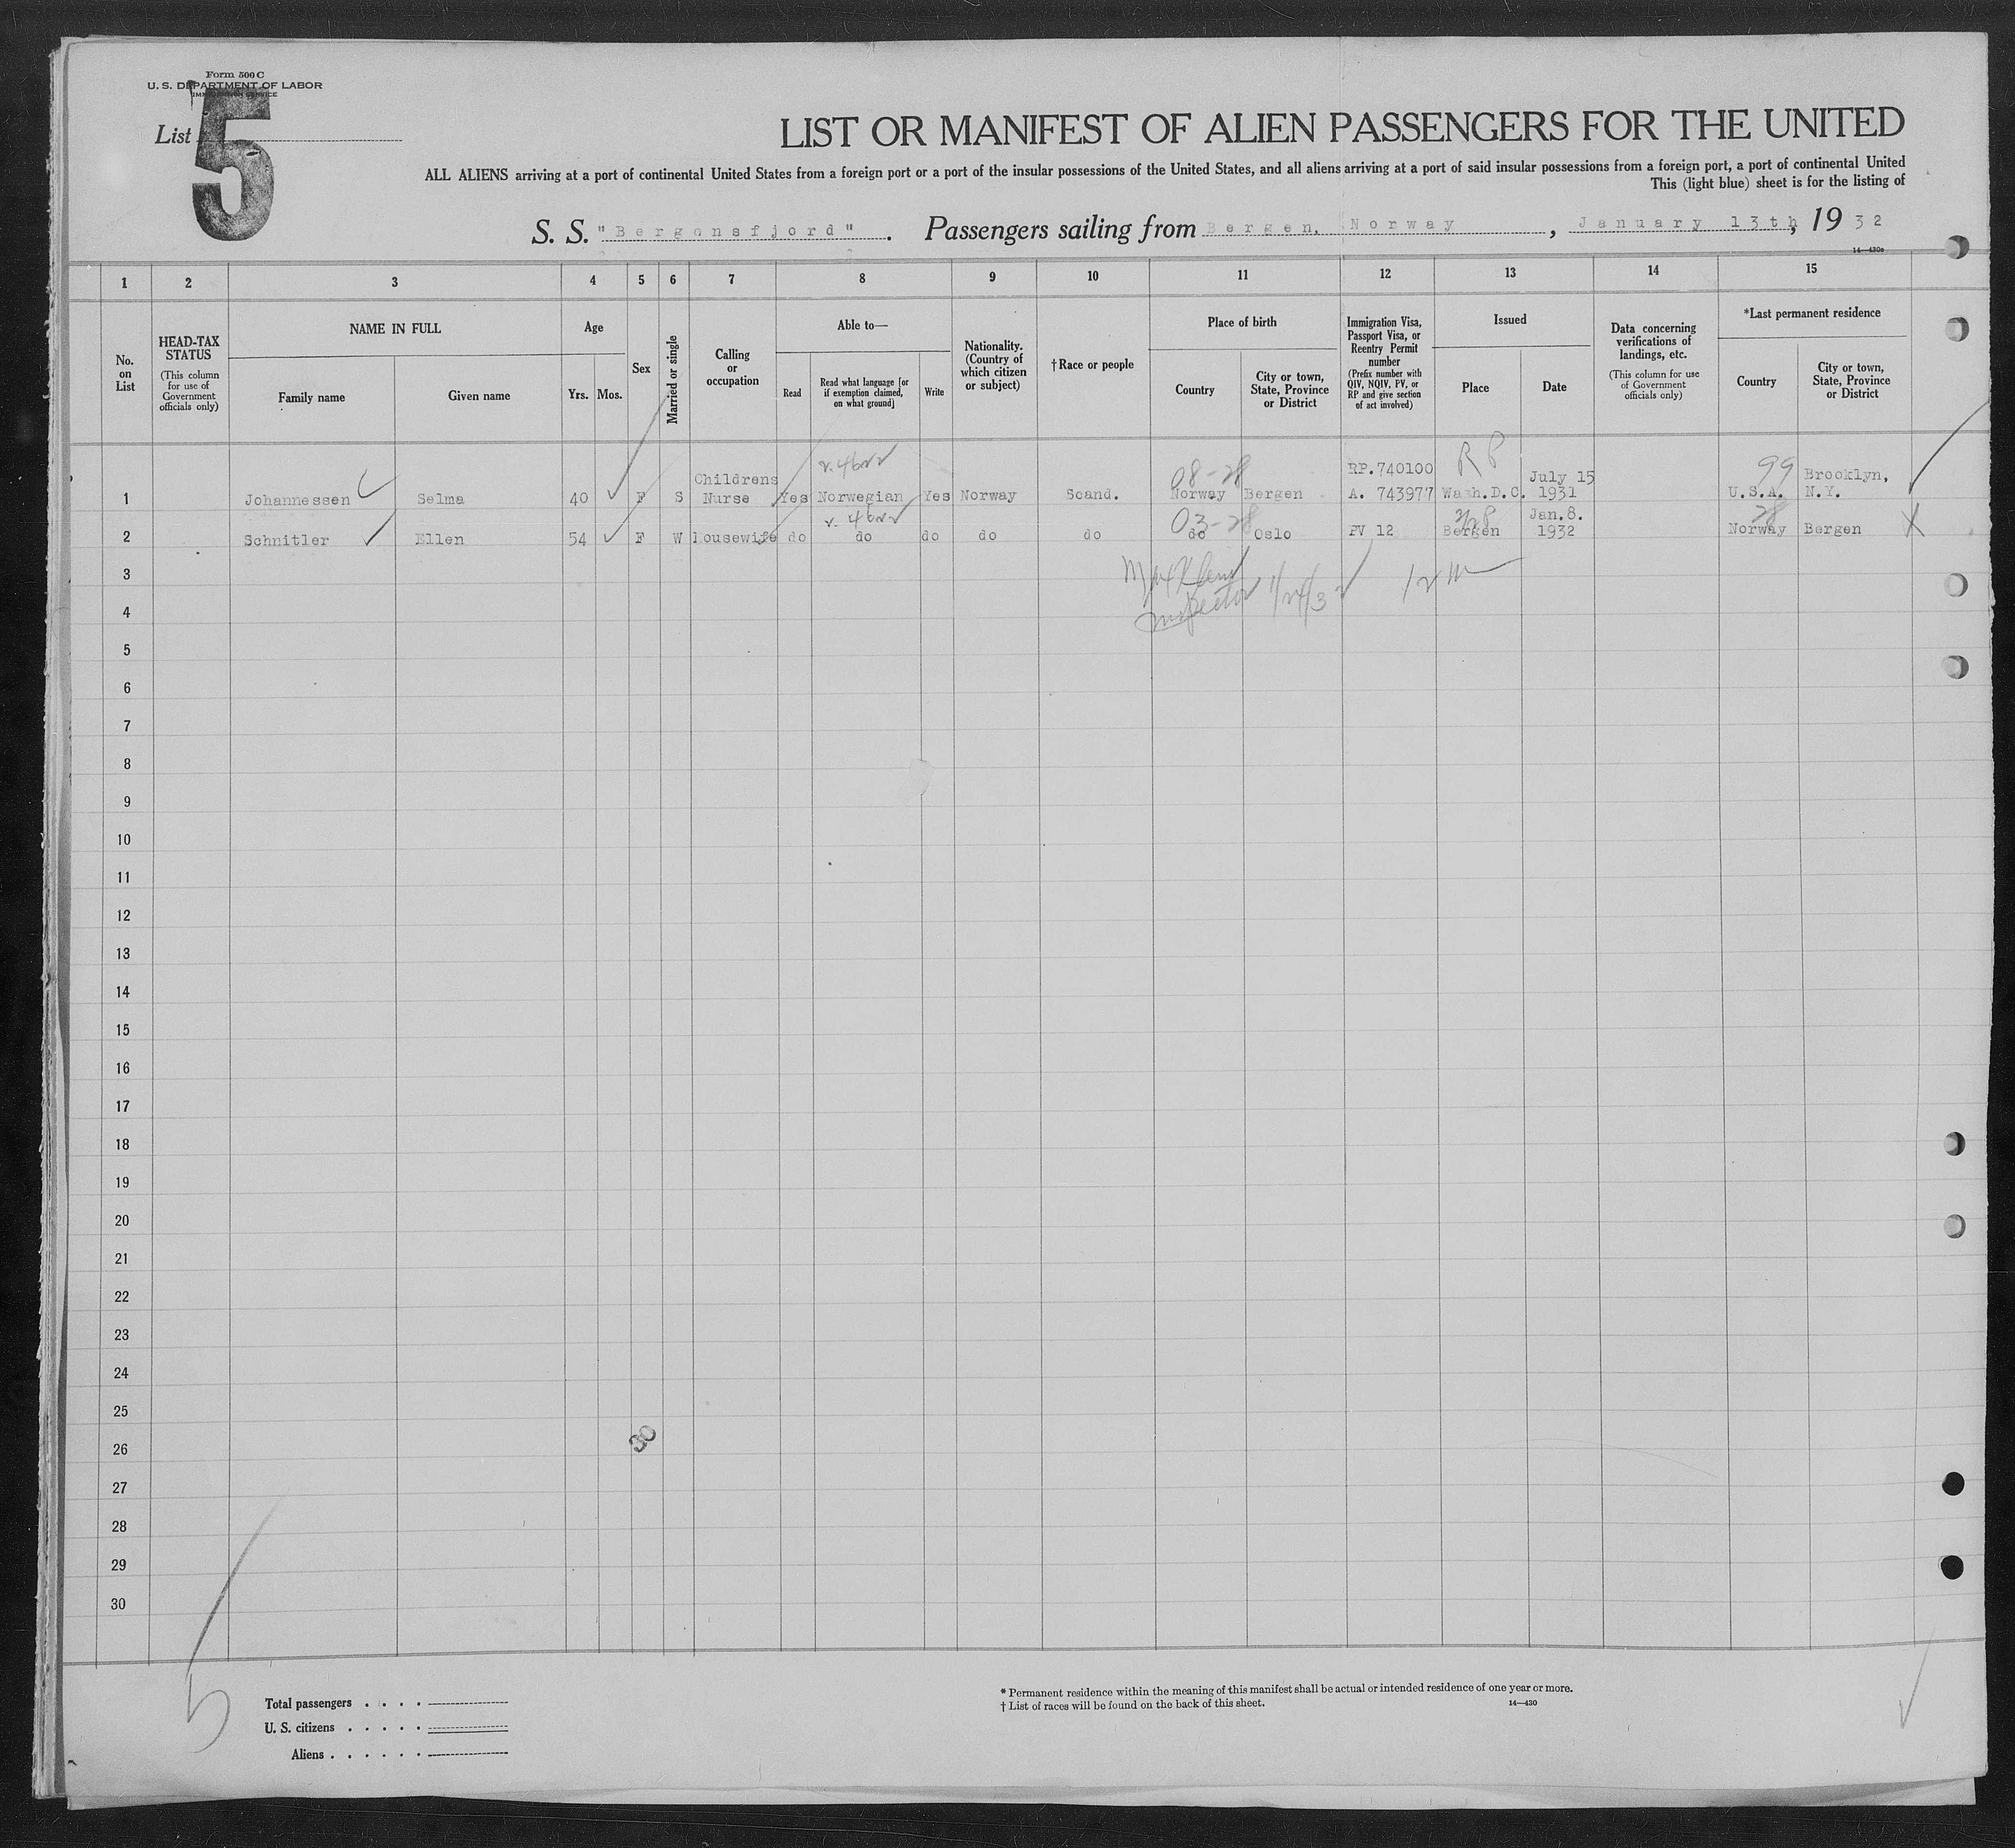 Form 500 C
U. S. DEPARTMENT OF LABOR
IMMIGRATION SERVICE
List 5
LIST OR MANIFEST OF ALIEN PASSENGERS FOR THE UNITED
ALL ALIENS arriving at a port of continental United States from a foreign port or a port of the insular possessions of the United States, and all aliens arriving at a port of said insular possessions from a foreign port, a port of continental United
This (light blue) sheet is for the listing of
S. S. "Bergensfjord". Passengers sailing from Bergen, Norway, January 13th, 1932
14—430a
1 2 3 4 5 6 7 8 9 10 11 12 13 14 15
No. on List
HEAD-TAX STATUS (This column for use of Government officials only)
NAME IN FULL
Family name Given name
Age
Yrs. Mos.
Sex
Married or single
Calling or occupation
Able to—
Read
Read what language [or if exemption claimed, on what ground]
Write
Nationality. (Country of which citizen or subject)
†Race or people
Place of birth
Country
City or town, State, Province or District
Immigration Visa, Passport Visa, or Reentry Permit number (Prefix number with QIV, NQIV, PV, or RP and give section of act involved)
Issued
Place Date
Data concerning verifications of landings, etc. (This column for use of Government officials only)
*Last permanent residence
Country
City or town, State, Province or District
08-28 RP 99
1 Johannessen Selma 40 F S Childrens Nurse Yes Norwegian Yes Norway Scand. Norway Bergen RP.740100 A. 743977 Wash.D.C. July 15 1931 U.S.A. Brooklyn, N.Y.
03-28 28
2 Schnitler Ellen 54 F W Housewife do do do do do do Oslo PV 12 Bergen Jan.8. 1932 Norway Bergen
3
Inspector 1/24/32
4
5
6
7
8
9
10
11
12
13
14
15
16
17
18
19
20
21
22
23
24
25
30
26
27
28
29
30
5
Total passengers . . . .
U. S. citizens . . . . .
Aliens . . . . . .
* Permanent residence within the meaning of this manifest shall be actual or intended residence of one year or more.
† List of races will be found on the back of this sheet. 14—430